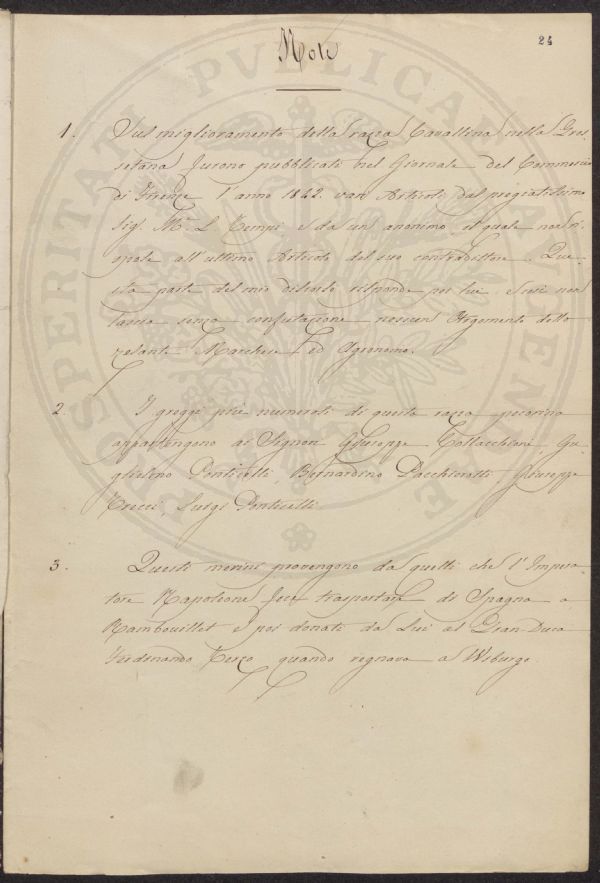 24
Note
1. Sul miglioramento della razza Cavallina nella Gros-
setana furono pubblicati nel Giornale del Commercio
di Firenze l'anno 1842 varj Articoli dal pregiatissimo
Sig. M. L. Tempi, e da un anonimo il quale non ri-
spose all'ultimo Articolo del suo contradittore. Que-
sta parte del mio discorso risponde per lui e così non
senza confutazione nessun Argomento dello
zelante Marchese ed Agronomo.
2. I greggi più numerosi di questa razza pecorina
appartengono ai Signori Giuseppe Collacchioni, Gu-
glielmo Ponticelli, Bernardino Pacchierotti, Giuseppe
Luigi Ponticelli
3. Questi merini provengono da quelli che l'Impera-
tore Napoleone fece trasportare di Spagna a
Rambouillet e poi donati da Lui al Gran-Duca
Ferdinando Terzo quando regnava a Wiburgo.
PROSPERITATI PVBLICAE AVGENDAE